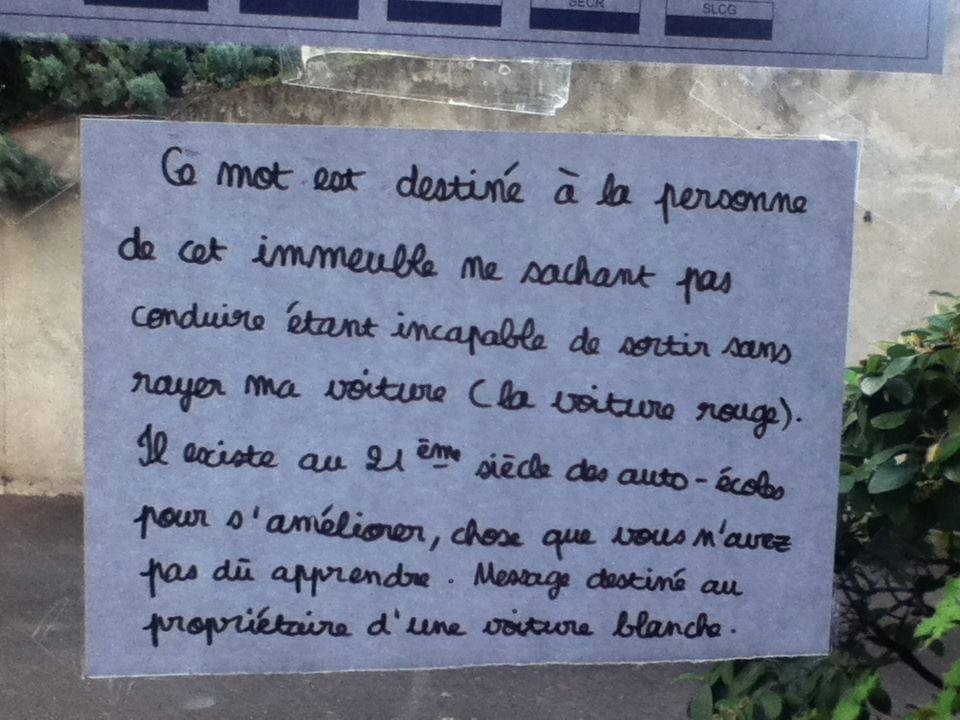 SECR SLCG
Ce mot est destiné à la personne
de cet immeuble ne sachant pas
conduire étant incapable de sortir sans
rayer ma voiture (la voiture rouge).
Il existe au 21ème siècle des auto-écoles
pour s'améliorer, chose que vous n'avez
pas dû apprendre. Message destiné au
propriétaire d'une voiture blanche.